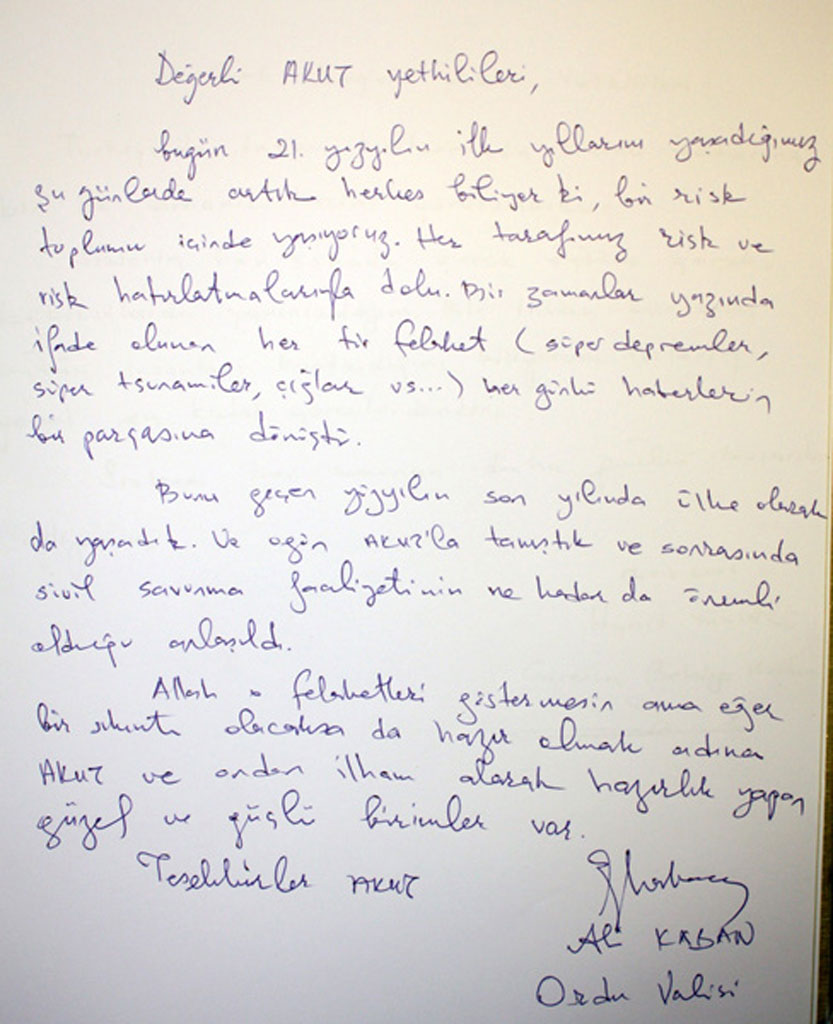 Değerli AKUT yetkilileri,
bugün 21. yüzyılın ilk yıllarını yaşadığımız
şu günlerde artık herkes biliyor ki, bir risk
toplumu içinde yaşıyoruz. Her tarafımız risk ve
risk hatırlatmalarıyla dolu. Bir zamanlar yazında
ifade olunan her bir felaket (süper depremler,
süper tsunamiler, çığlar vs...) her günkü haberlerin
bir parçasına dönüştü.
Bunu geçen yüzyılın son yılında ülke olarak
da yaşadık. Ve ogün AKUT'la tanıştık ve sonrasında
sivil savunma faaliyetinin ne kadar da önemli
olduğu anlaşıldı.
Allah o felaketleri göstermesin ama eğer
bir sıkıntı olacaksa da hazır olmak adına
AKUT ve ondan ilham alarak hazırlık yapan
güzel ve güçlü birimler var.
Teşekkürler AKUT
Ali KABAN
Ordu Valisi